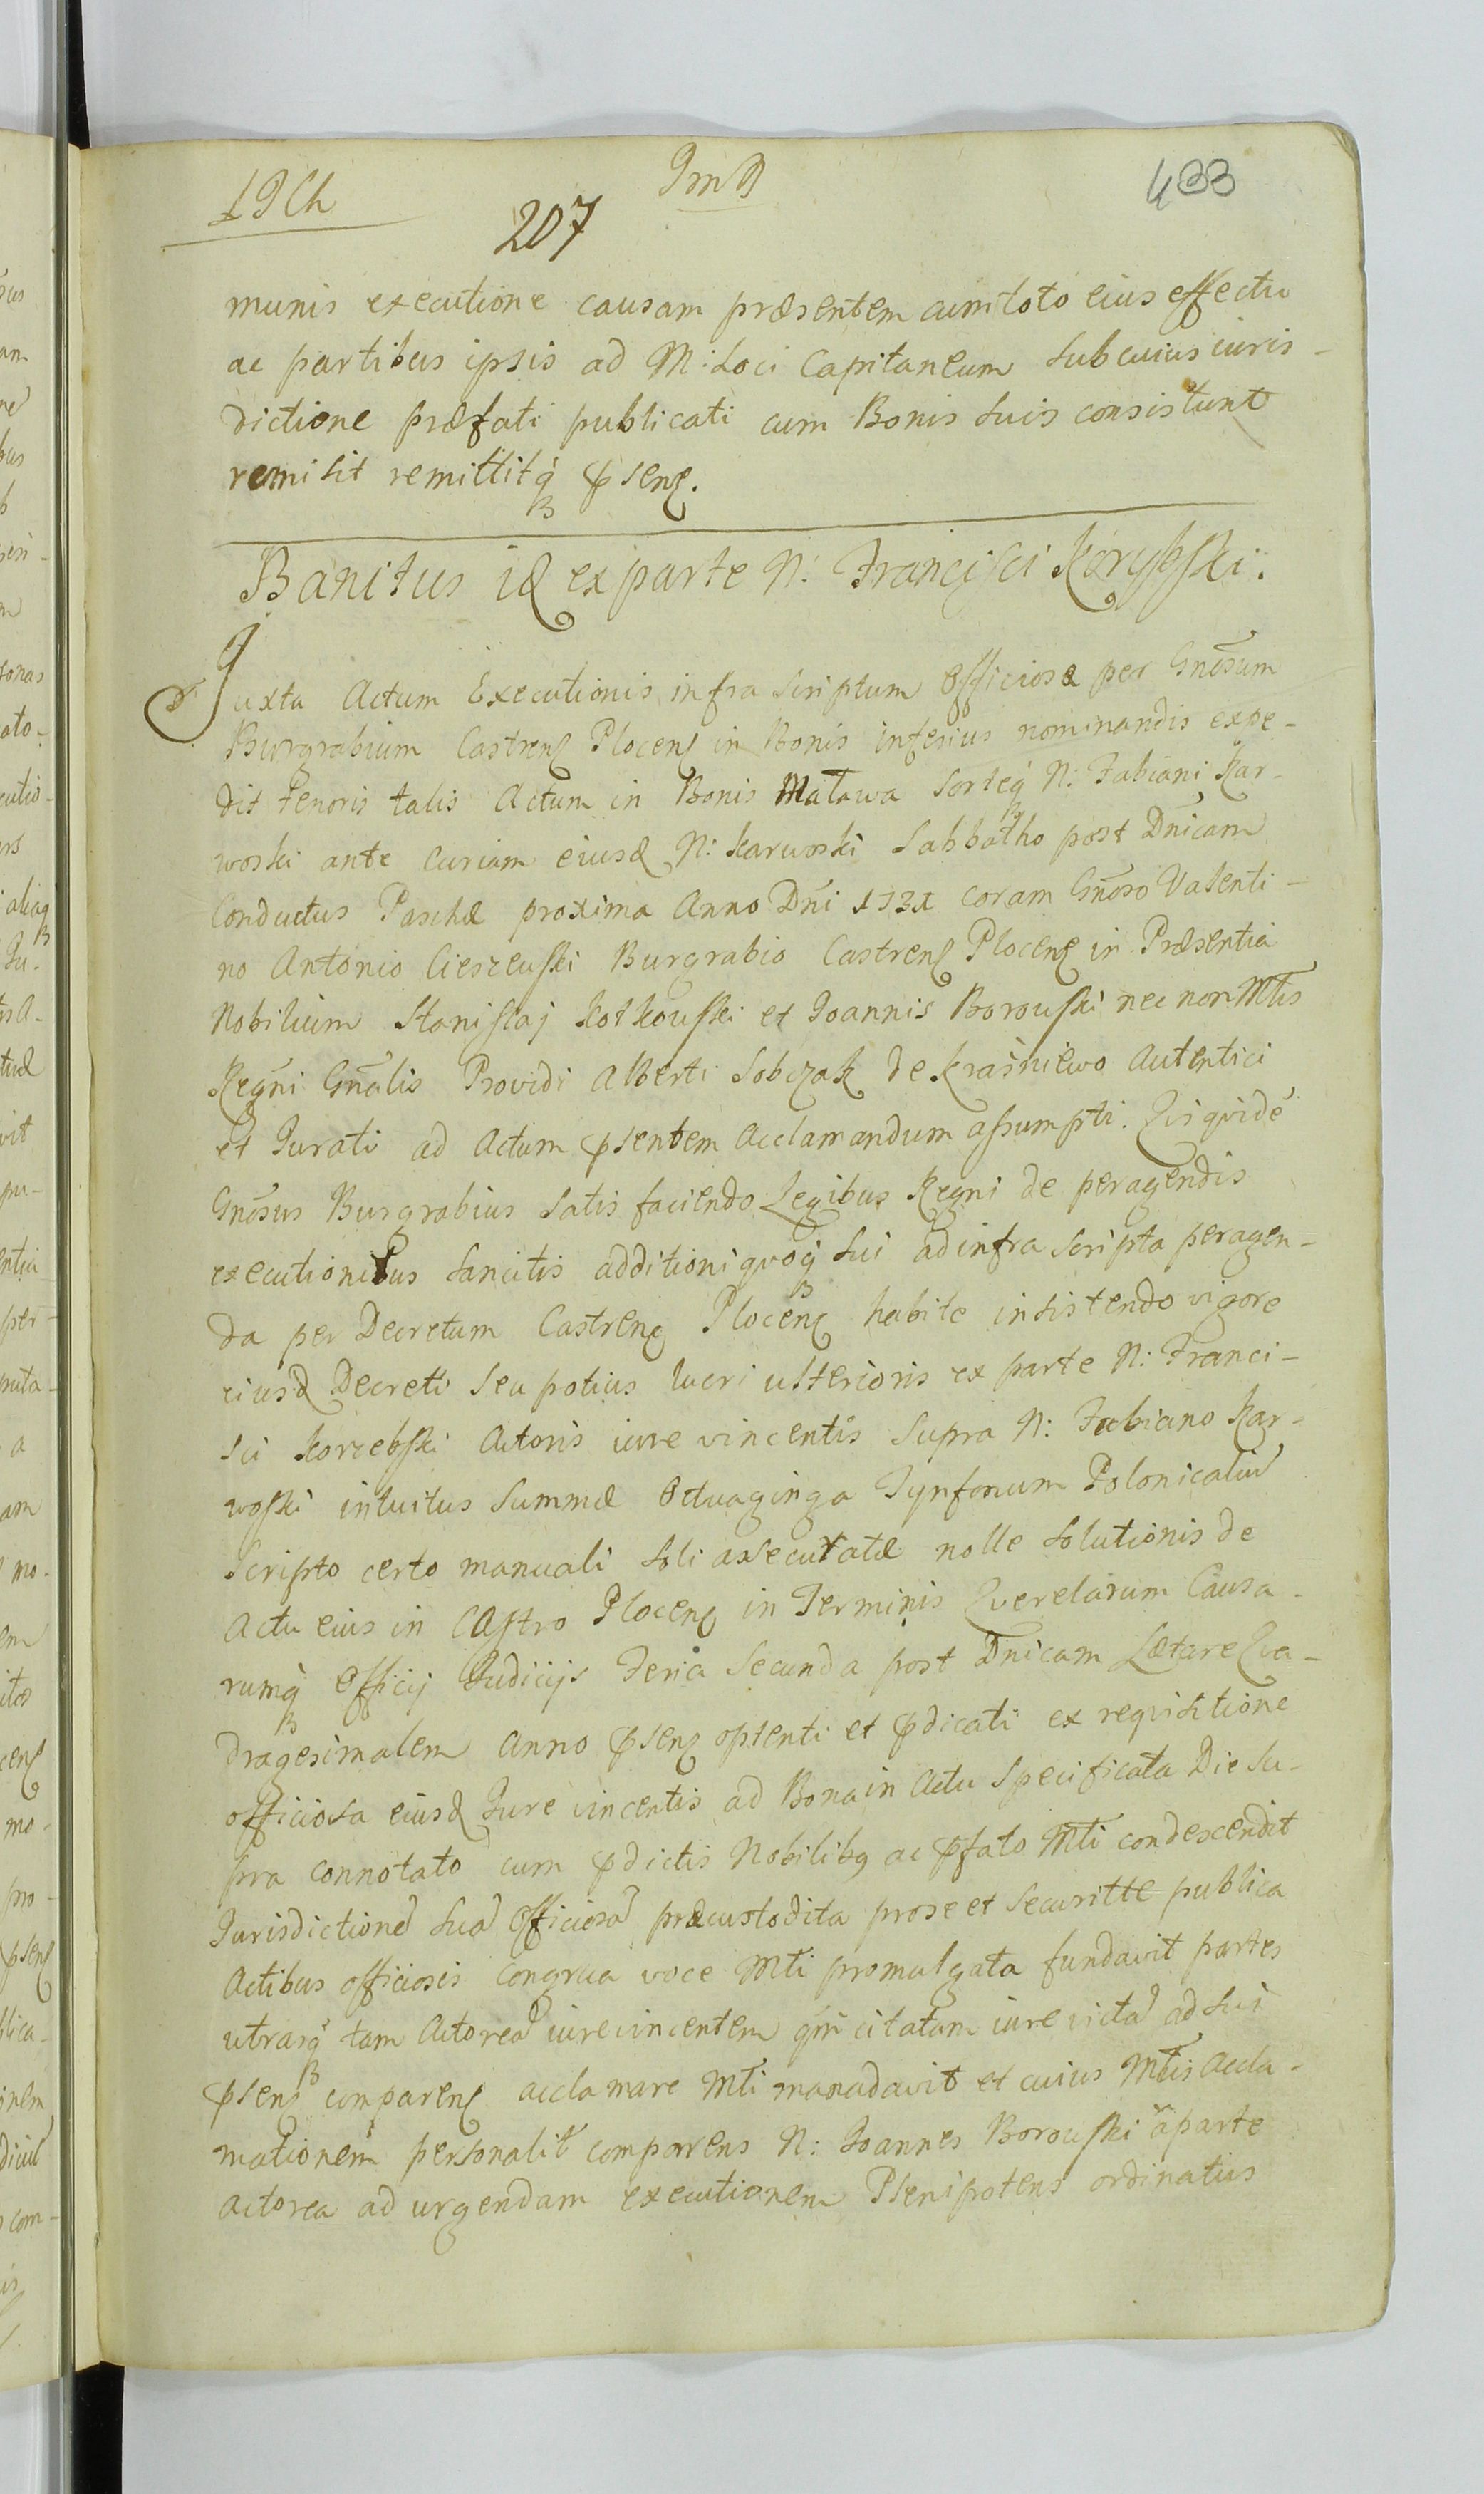 19 Ch
207
433
munis executione causam præsentem cum toto eius effectu
ac partibus ipsis ad M: Loci Capitaneum sub cuius iuris-
dictione præfati publicati cum Bonis suis consistunt
remisit remittitq pseng.
Banitus id ex parte N: Francisci Korybski.
Juxta Actum Executionis infra scriptum officiose per Gnosum
Burgrabium Castreng Ploceng in Bonis inferius nominandis expe-
dit tenoris talis Actum in Bonis Matawa Sorteq N: Fabiani Kar-
woski ante Curiam eiusd N: Karwoski Sabbatho post Dnicam
Conductus Paschæ proxima Anno Dni 1731 coram Gnoso Valenti-
no Antonio Cieszeuski Burgrabio Castreng Ploceng in Præsentia
Nobilium Stanislaj Kotkouski et Joannis Borouski nec non Mtis
Regni Gnalis Providi Alberti Sobczak de Krasniewo Autentici
et Jurati ad Actum psentem Acclamandum assumpti. Qui qvidé
Gnosus Burgrabius satis faciendo Legibus Regni de peragendis
executionibus sancitis additioni qvoq sui ad infra scripta peragen-
da per Decretum Castreng Ploceng habite insistendo vigore
eiusd Decreti seu potius lucri ulterioris ex parte N: Franci-
sci Korzebski Actoris iure vincentis supra N: Fabiano Kar-
woski intuitus summæ Octuaginga Tynfonum Polonicaliu
Scripto certo manuali soli assecuratæ nolle solutionis de
Actu eius in Castro Ploceng in Terminis Qverelarum Causa-
rumq Officij Judicijs Feria Secunda post Dnicam Lætare Qva-
dragesimalem Anno pseng optenti et pdicati ex reqvisitione
officiosa eiusd Jure vincentis ad Bona in Actu specificata Die su-
pra connotato cum pdictis Nobilibq ac pfato Mti condescendit
Jurisdictione sua Officiosa præcustodita prose et securitte publica
Actibus officiosis congrua voce Mti promulgata fundavit partes
utrasq tam Actorea iure vincentem qm citatam iure victa ad sui
pseng compareng acclamare Mti manadavit et cuius Mtis Accla-
mationem personalit comparens N: Joannes Borouski aparte
actorea ad urgendam executionem Plenipotens ordinatus